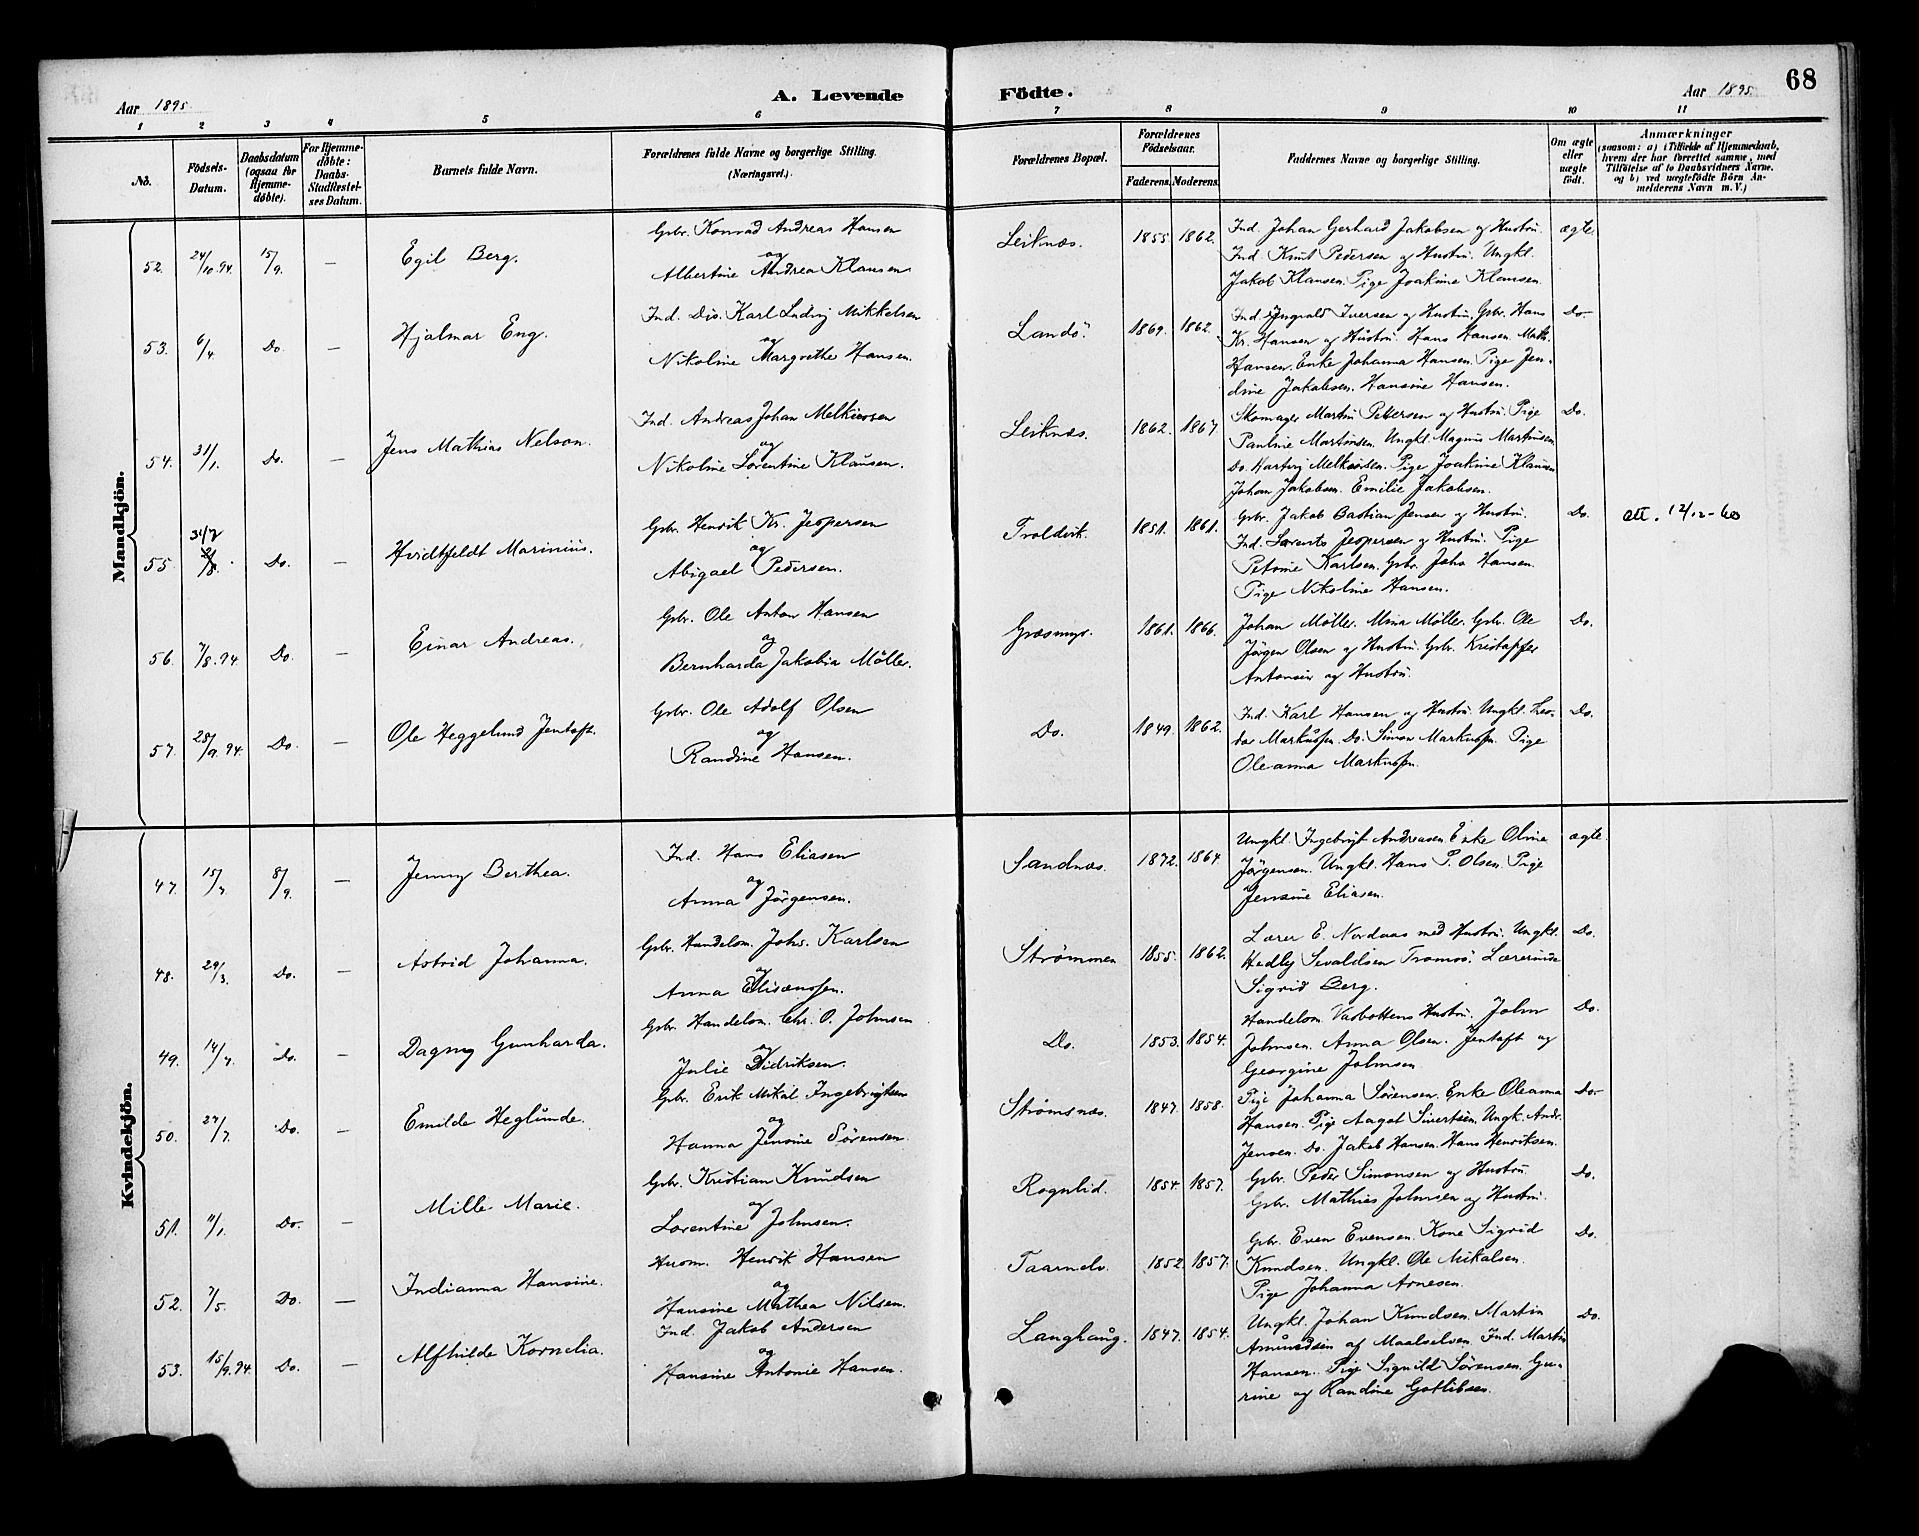 Aar 1895. A. Levende Fødte. Aar 1895. 68
1 2 3 4 5 6 7 8 9 10 11
No.
Fødsels-Datum.
Daabsdatum (ogsaa for Hjemmedøbte).
For Hjemmedøbte: Daabs-Stadfæstelses Datum.
Barnets fulde Navn.
Forældrenes fulde Navne og borgerlige Stilling. (Næringsvei.)
Forældrenes Bopæl.
Forældrenes Fødselsaar.
Faderens. Moderens.
Faddernes Navne og borgerlige Stilling.
Om ægte eller uægte født.
Anmærkninger
(saasom: a) i Tilfælde af Hjemmedaab, hvem der har forrettet samme, med Tilføielse af to Daabsvidners Navne, og b) ved uægtefødte Børn Anmelderens Navn m. V.)
Mandkjön.
52. 24/10.94. 15/9. — Egil Berg. Gbr. Konrad Andreas Hansen og Albertine Andrea Klausen Leiknæs. 1855. 1862. Ind. Johan Gerhard Jakobsen og Hustru. ægte.
Ind. Knut Pedersen og Hustru. Ungkl.
Jakob Klausen. Pige Joakime Klausen.
53. 6/4. Do. — Hjalmar Eng. Ind. Dis. Karl Ludvig Mikkelsen og Nikoline Margrethe Hansen. Landsö. 1869. 1862. Ind. Ingvald Iversen og Hustru. Gbr. Hans Do.
Kr. Hansen og Hustru. Hans Hansen. Math.
Hansen. Enke Johanna Hansen. Pige Jen-
dine Jakobsen. Hansine Hansen.
54. 31/1. Do. — Jens Mathias Nelson. Ind. Andreas Johan Melkiorsen og Nikoline Lorentine Klausen. Leiknæs. 1862. 1867. Skomager Martin Pettersen og Hustru. Pige Do.
Pauline Martinsen. Ungkl. Magnus Martinsen
Do. Hartvig Melkiorsen. Pige Joakime Klausen
Johan Jakobsen. Emilie Jakobsen.
55. 31/7 Do. — Hvidtfeldt Marinius. Gbr. Henrik Kr. Jespersen og Abigael Pedersen. Troldvik. 1851. 1861. Gbr. Jakob Bastian Jensen og Hustru. Do. att. 12/12-60
Ind. Lorents Jespersen og Hustru. Pige
Petrine Karlsen. Gbr. Johs Hansen.
Pige Nikoline Hansen.
56. 7/8.94 Do. — Einar Andreas. Gbr. Ole Anton Hansen og Bernharda Jakobia Møller. Græsmyr. 1861. 1866. Johan Møller. Mina Møller. Gbr. Ole Do.
Jørgen Olsen og Hustru. Gbr. Kristoffer
Antonsen og Hustru.
57. 28/9.94. Do. — Ole Heggelund Jentoft. Gbr. Ole Adolf Olsen og Randine Hansen. Do. 1849. 1862. Ind. Karl Hansen og Hustru. Ungkl. Do.
Markussen. Do. Simon Markussen. Pige
Oleanna Markussen.
Kvindekjön.
47. 15/7 8/9. — Jenny Berthea. Ind. Hans Eliasen og Anna Jørgensen. Sandnæs. 1872. 1864. Ungkl. Ingebrigt Andreasen. Enke Olina ægte.
Jørgensen. Ungkl. Hans P. Olsen. Pige
Jensine Eliasen.
48. 29/3. Do. — Astrid Johanna. Gbr. Handelsm. Johs. Karlsen og Anna Eliseussen. Strømmen 1855. 1862. Lærer E. Nordaas med Hustru. Ungkl. Do.
Hedley Sivaldsen Tromsö. Lærerinde
Sigrid Berg.
49. 14/7. Do. — Dagny Gunharda. Gbr. Handelsm. Chr. O. Johnsen og Julie Didriksen. Do. 1853. 1854. Handelsm. Hustru. John Do.
Johnsen. Anna Olsen. Jentoft og
Georgine Johnsen
50. 27/7. Do. — Emilde Heglunde. Gbr. Erik Mikal Ingebrigtsen og Hanna Jensine Sörensen. Strømsnæs. 1847. 1858. Pige Johanna Sörensen. Enke Oleanna Do.
Hansen. Pige Aagot Sivertsen. Ungk. Andr.
Jensen. Do. Jakob Hansen. Hans Henriksen.
51. 11/1. Do. — Mille Marie. Gbr. Kristian Knudsen og Lorentine Johnsen. Rognlid. 1854. 1857. Gbr. Peder Simonsen og Hustru Do.
Gbr. Mathias Johnsen og Hustru.
52. 7/5. Do. — Indianna Hansine. Husm. Henrik Hansen og Hansine Mathea Nilsen. Taarnelv. 1852. 1857. Gbr. Even Evensen. Kone Sigrid Do.
Knudsen. Ungkl. Ole Mikalsen.
Pige Johanna Arnesen.
53. 15/9.94 Do. — Alfhilde Kornelia. Ind. Jakob Andersen og Hansine Antonie Hansen. Langhaug. 1847. 1854. Ungkl. Johan Knudsen. Martin Do.
Amundsen af Maalselven. Ind. Martin
Hansen. Pige Signild Sørensen. Gu-
rine og Randine Gotlibsen.